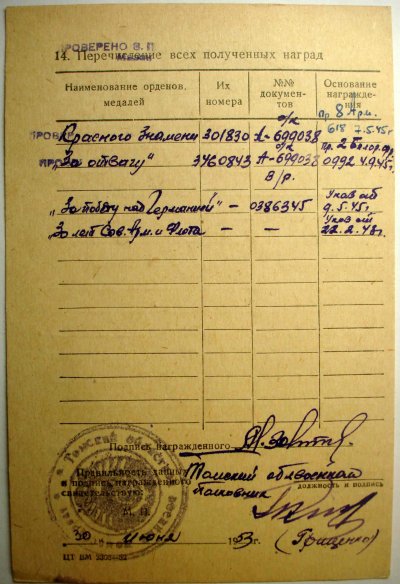 ПРОВЕРЕНО В. П
14. Перечисление всех полученных наград
Наименование орденов, медалей
Их номера
№№ документов
Основание награждения
о/к
Пр 8 Арм.
Красного Знамени 301830 А-699038 618 7.5.45г
о/к
"За отвагу" 3460843 А-699038 0992 4.9.45г.
В/р.
Указ от
"За победу над Германией" – 0386345 9.5.45г
Указ от
"30 лет Сов. Арм. и Флота – – 22.2.48г.
Подпись награжденного
Правильность данных
и подпись награжденного
свидетельствую:
Томский облвоенком
Полковник
должность и подпись
М. П.
30 июня 1953г. (Грищенко)
ЦТ ВМ